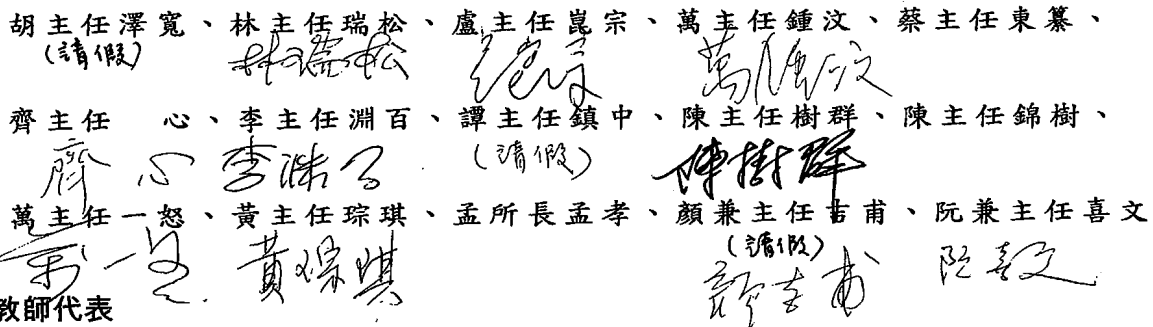 胡主任澤寬、林主任瑞松、盧主任崑宗、萬主任鍾汶、蔡主任東纂、
(請假) 林瑞松 萬鍾汶
齊主任 心、李主任淵百、譚主任鎮中、陳主任樹群、陳主任錦樹、
齊心 李淵百 (請假) 陳樹群
萬主任一怒、黃主任琮琪、孟所長孟孝、顏兼主任吉甫、阮兼主任喜文
(請假)
萬一怒 黃琮琪 顏吉甫 阮喜文
教師代表